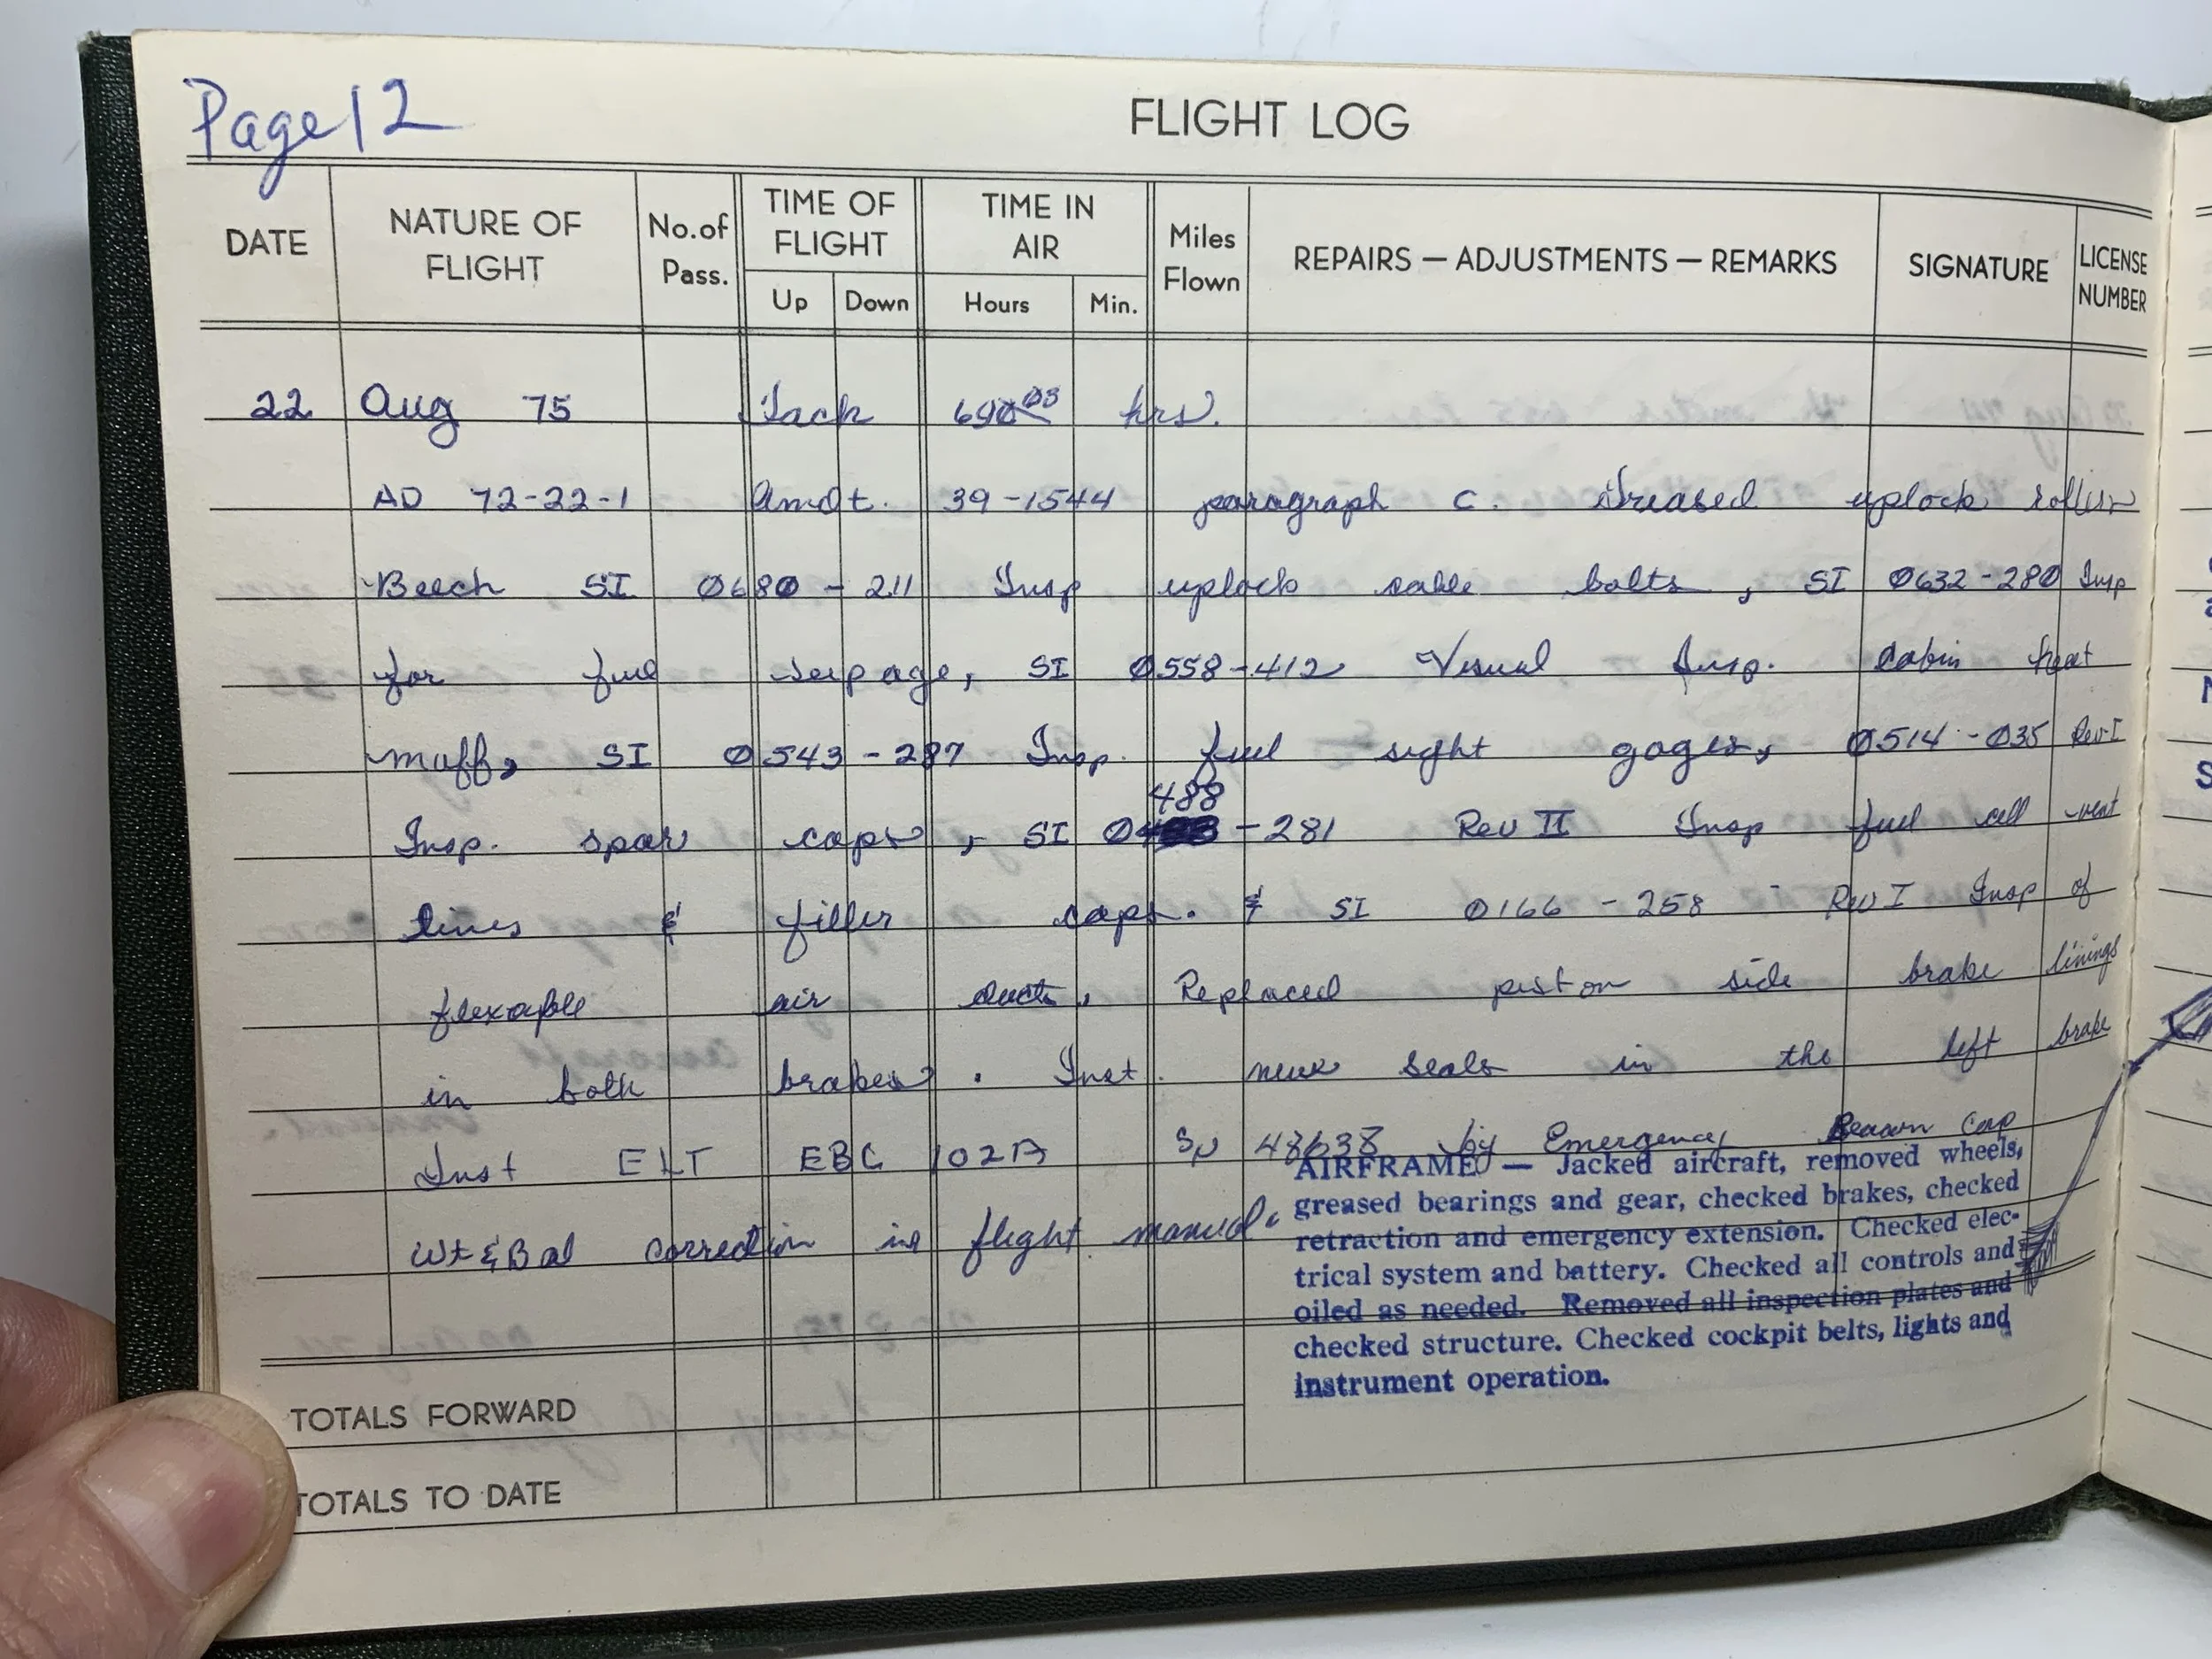 Page 12
FLIGHT LOG
DATE
NATURE OF FLIGHT
No. of Pass.
TIME OF FLIGHT
Up Down
TIME IN AIR
Hours Min.
Miles Flown
REPAIRS — ADJUSTMENTS — REMARKS
SIGNATURE
LICENSE NUMBER
22 Aug 75 Tach hrs.
AD 72-22-1 Amdt. 39-1544 paragraph c. Greased uplock rollers
Beech SI 0680-211 Insp uplock cable bolts, SI 0632-280 Insp
for fuel seepage, SI 0558-412 Visual Insp. Cabin heat
muff, SI 0543-287 Insp. fuel sight gages, 0514-035 Rev I
Insp. spar caps, SI 0488-281 Rev II Insp fuel cell vent
lines & filler caps. & SI 0166-258 Rev I Insp of
flexable air ducts, Replaced piston side brake linings
in both brakes. Inst. new seals in the left brake
Inst ELT EBC 102A SN by Emergency Beacon Corp
Wt & Bal correction in flight manual.
AIRFRAME — Jacked aircraft, removed wheels,
greased bearings and gear, checked brakes, checked
retraction and emergency extension. Checked elec-
trical system and battery. Checked all controls and
oiled as needed. Removed all inspection plates and
checked structure. Checked cockpit belts, lights and
instrument operation.
TOTALS FORWARD
TOTALS TO DATE